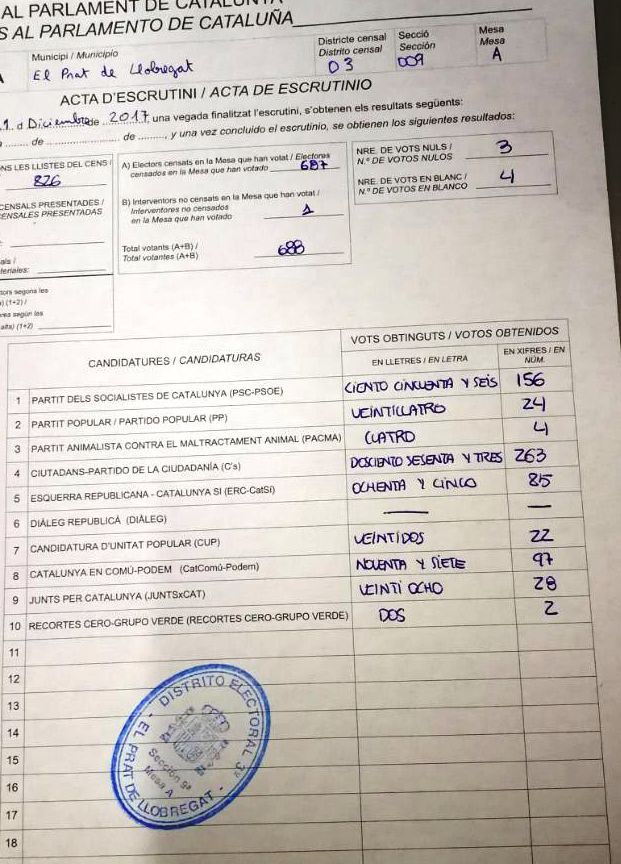 AL PARLAMENT DE CATALUNYA
S AL PARLAMENTO DE CATALUÑA
Municipi / Municipio
El Prat de Llobregat
Districte censal
Distrito censal
03
Secció
Sección
009
Mesa
Mesa
A
ACTA D'ESCRUTINI / ACTA DE ESCRUTINIO
1. d Diciembre de 2017, una vegada finalitzat l'escrutini, s'obtenen els resultats següents:
de de , y una vez concluido el escrutinio, se obtienen los siguientes resultados:
NS LES LLISTES DEL CENS
826
CENSALS PRESENTADES /
CENSALES PRESENTADAS
als /
teriales:
tors segons les
) (1+2) /
res según las
alta) (1+2)
A) Electors censats en la Mesa que han votat / Electores
censados en la Mesa que han votado 687
B) Interventors no censats en la Mesa que han votat /
Interventores no censados
en la Mesa que han votado 1
Total votants (A+B) /
Total votantes (A+B) 688
NRE. DE VOTS NULS /
N.º DE VOTOS NULOS 3
NRE. DE VOTS EN BLANC /
N.º DE VOTOS EN BLANCO 4
CANDIDATURES / CANDIDATURAS
VOTS OBTINGUTS / VOTOS OBTENIDOS
EN LLETRES / EN LETRA
EN XIFRES / EN
NÚM.
1 PARTIT DELS SOCIALISTES DE CATALUNYA (PSC-PSOE) CIENTO CINCUENTA Y SEIS 156
2 PARTIT POPULAR / PARTIDO POPULAR (PP) VEINTICUATRO 24
3 PARTIT ANIMALISTA CONTRA EL MALTRACTAMENT ANIMAL (PACMA) CUATRO 4
4 CIUTADANS-PARTIDO DE LA CIUDADANÍA (C's) DOSCIENTO SESENTA Y TRES 263
5 ESQUERRA REPUBLICANA - CATALUNYA SI (ERC-CatSí) OCHENTA Y CINCO 85
6 DIÀLEG REPUBLICÀ (DIÀLEG) — —
7 CANDIDATURA D'UNITAT POPULAR (CUP) VEINTIDOS 22
8 CATALUNYA EN COMÚ-PODEM (CatComú-Podem) NOVENTA Y SIETE 97
9 JUNTS PER CATALUNYA (JUNTSxCAT) VEINTI OCHO 28
10 RECORTES CERO-GRUPO VERDE (RECORTES CERO-GRUPO VERDE) DOS 2
11
12
13
14
15
16
17
18
DISTRITO ELECTORAL 3º
Sección 9ª
Mesa A
- EL PRAT DE LLOBREGAT -